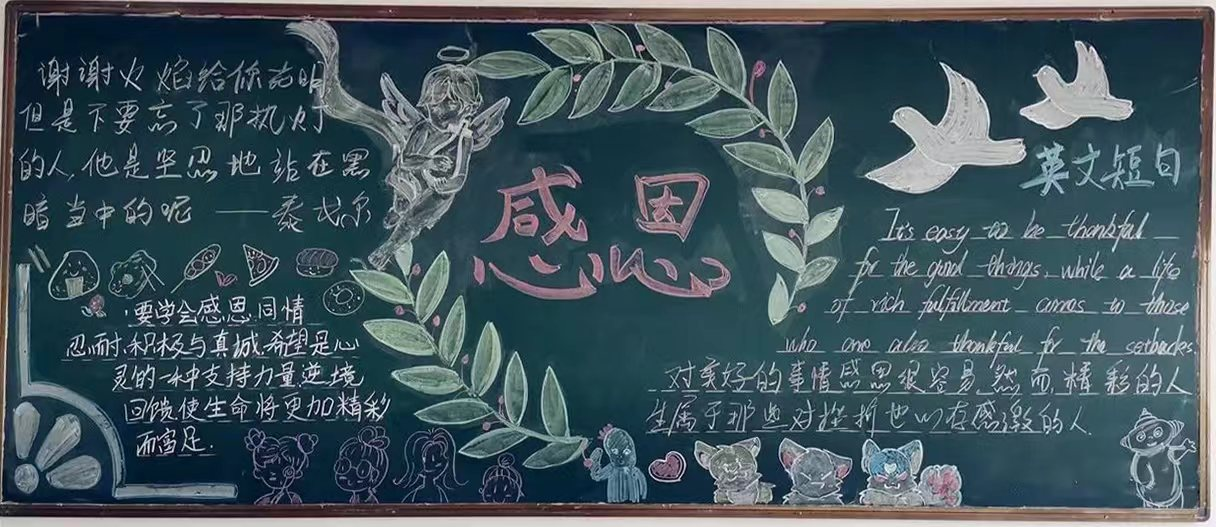 谢谢火焰给你光明
但是不要忘了那执灯
的人,他是坚忍地站在黑
暗当中的呢——泰戈尔
要学会感恩、同情
忍耐、积极与真诚.希望是心
灵的一种支持力量逆境
回馈,使生命将更加精彩
而富足.
感恩
英文短句
It's easy to be thankful
for the good things, while a life
of rich fulfillment comes to those
who are also thankful for the setbacks.
对美好的事情感恩很容易,然而,精彩的人
生属于那些对挫折也心存感激的人.